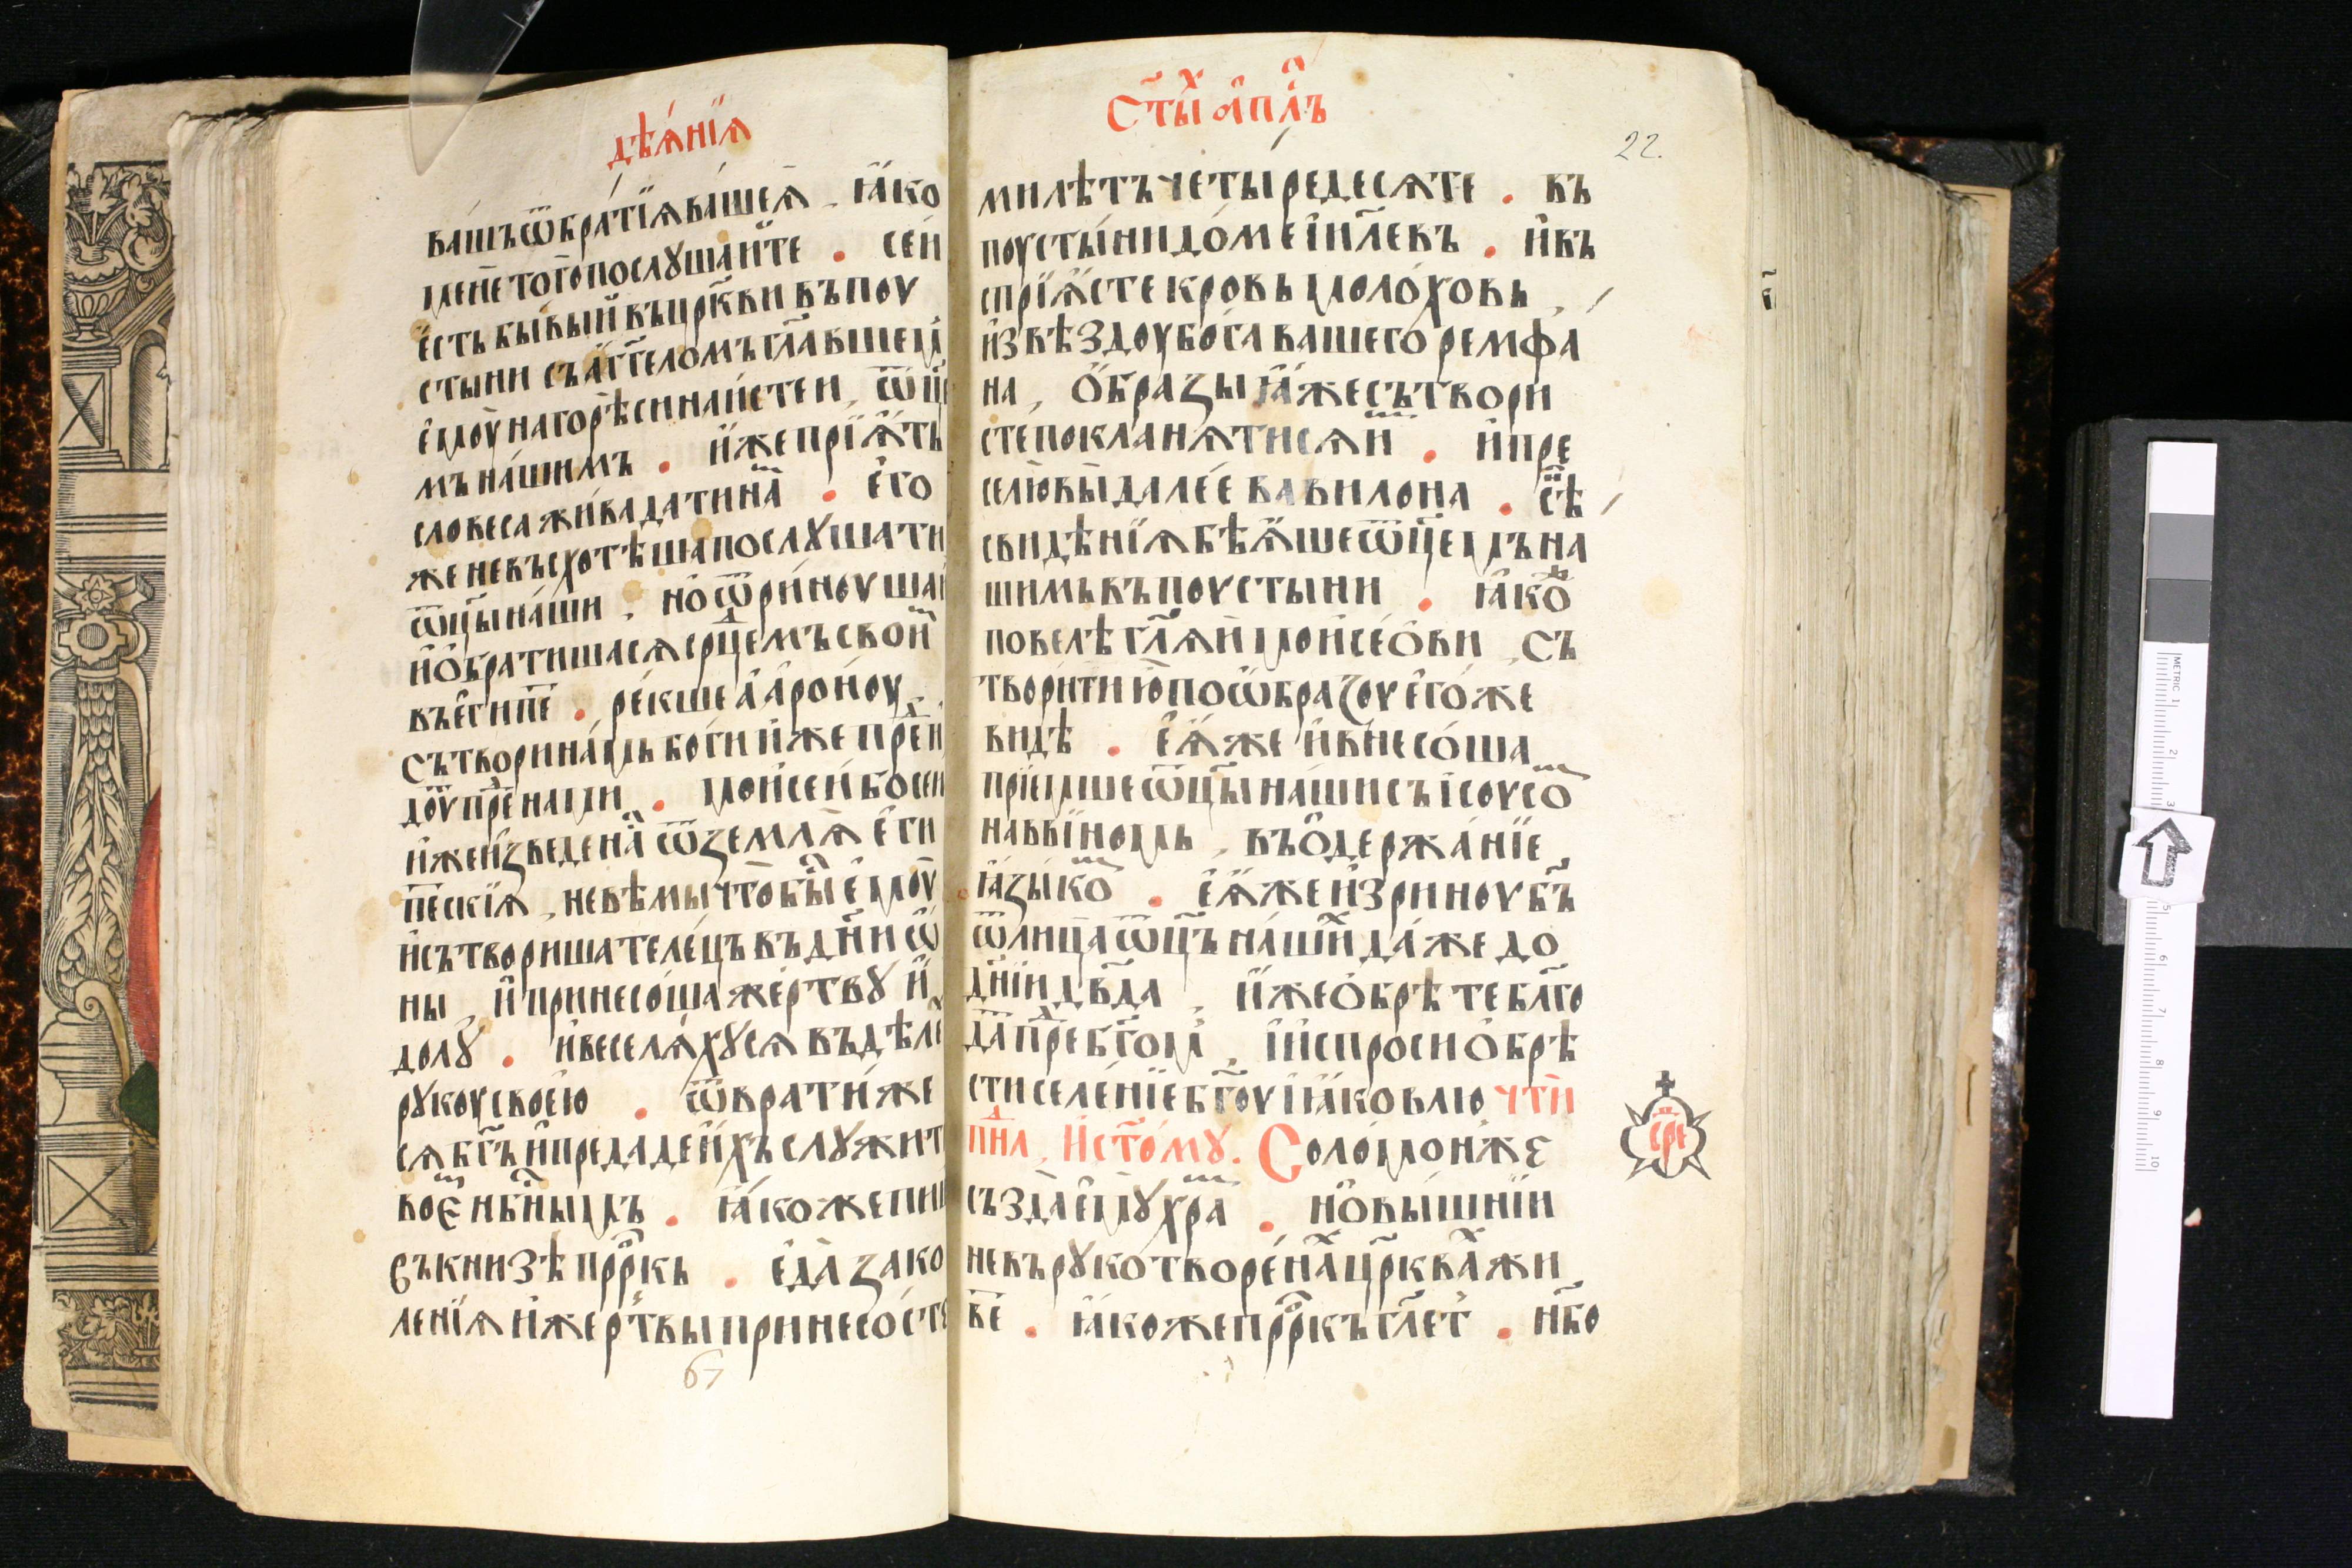 дѣѧнїѧ
вашъ ѿ братїѧ вашеѧ, ꙗко
мене того послꙋшаите. сеи
есть бывыи въ цр҃кви въ поу
стыни съ аг҃гломъ гл҃авшем
емоу на горѣ синаистеи, ѿц҃е
мъ нашимъ. иже прїѧтъ
словеса жива дати на. его
же не въсхотѣша послꙋшати
ѿцы наши, но ѿриноуша и
и ѡбратишасѧ ср҃цемъ свои
въ египе. рекше аароноу
сътвори намь боги иже преи
доу пре нами. моисеи бо сеи
иже изведе на ѿ землѧ еги
пескїѧ, не вѣмы что бы емоу
и сътвориша телецъ въ дн҃и ѡ
ны, и принесоша жертвꙋ и
долꙋ. и веселѧхꙋсѧ въ дѣле
рꙋкоу своею. ѿврати же
сѧ бг҃ъ и предаде ихъ слꙋжит
вое нб҃нымъ. ꙗкоже пи
въ книзѣ пр҃ркь. еда зако
ленїѧ и жертвы принесосте
67
ст҃ы апл҃ъ
22.
ми лѣтъ четыредесѧте. въ
поустыни доме іи҃левъ. и въ
спрїѧсте кровь молоховь,
и звѣздоу бога вашего ремфа
на, ѡбразы ꙗже сътвори
сте покланѧтисѧ и. и пре
селю вы далее вавилона. сѣ
свидѣнїѧ бѣѧше ѿц҃емъ на
шимь въ поустыни. ꙗко
повелѣ гл҃ѧи моисеови, съ
творити ю по ѡбразоу егоже
видѣ. еѧже и внесоша
прїемше ѿцы наши съ ісоусо
наввїномь, въ одержанїе
ꙗзыко. еѧже изриноу бг҃ъ
ѿ лица ѿц҃ъ наши даже до
дн҃їи дв҃да, иже ѡбрѣте бл҃го
да пре бг҃ом, и испроси ѡбрѣ
сти селенїе бг҃оу іꙗковлю чти
пн҃л, и ст҃омꙋ. Соломон же
създа емꙋ хра. но вышнїи
не въ рꙋкотворена цр҃ква жи
ве. ꙗкоже пр҃ркъ гл҃ет. нб҃о
сре